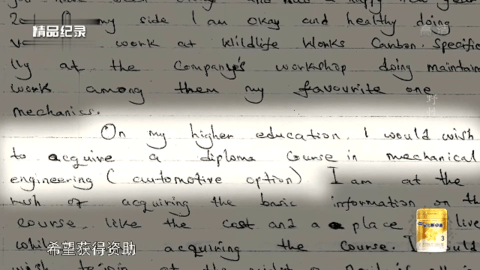 精品纪录
my side I am okay and healthy doing
work at Wildlife Works Canbon. Specific
lly at the Company's workshop doing maintain
work among them my favourite one
mechanics.
On my higher education. I would wish
to acquire a diploma Course in mechanical
engineering (automotive option) I am at the
rush of acquiring the basic information on the
course. like the cost and a place live
while acquiring the Course. I would
希望获得资助